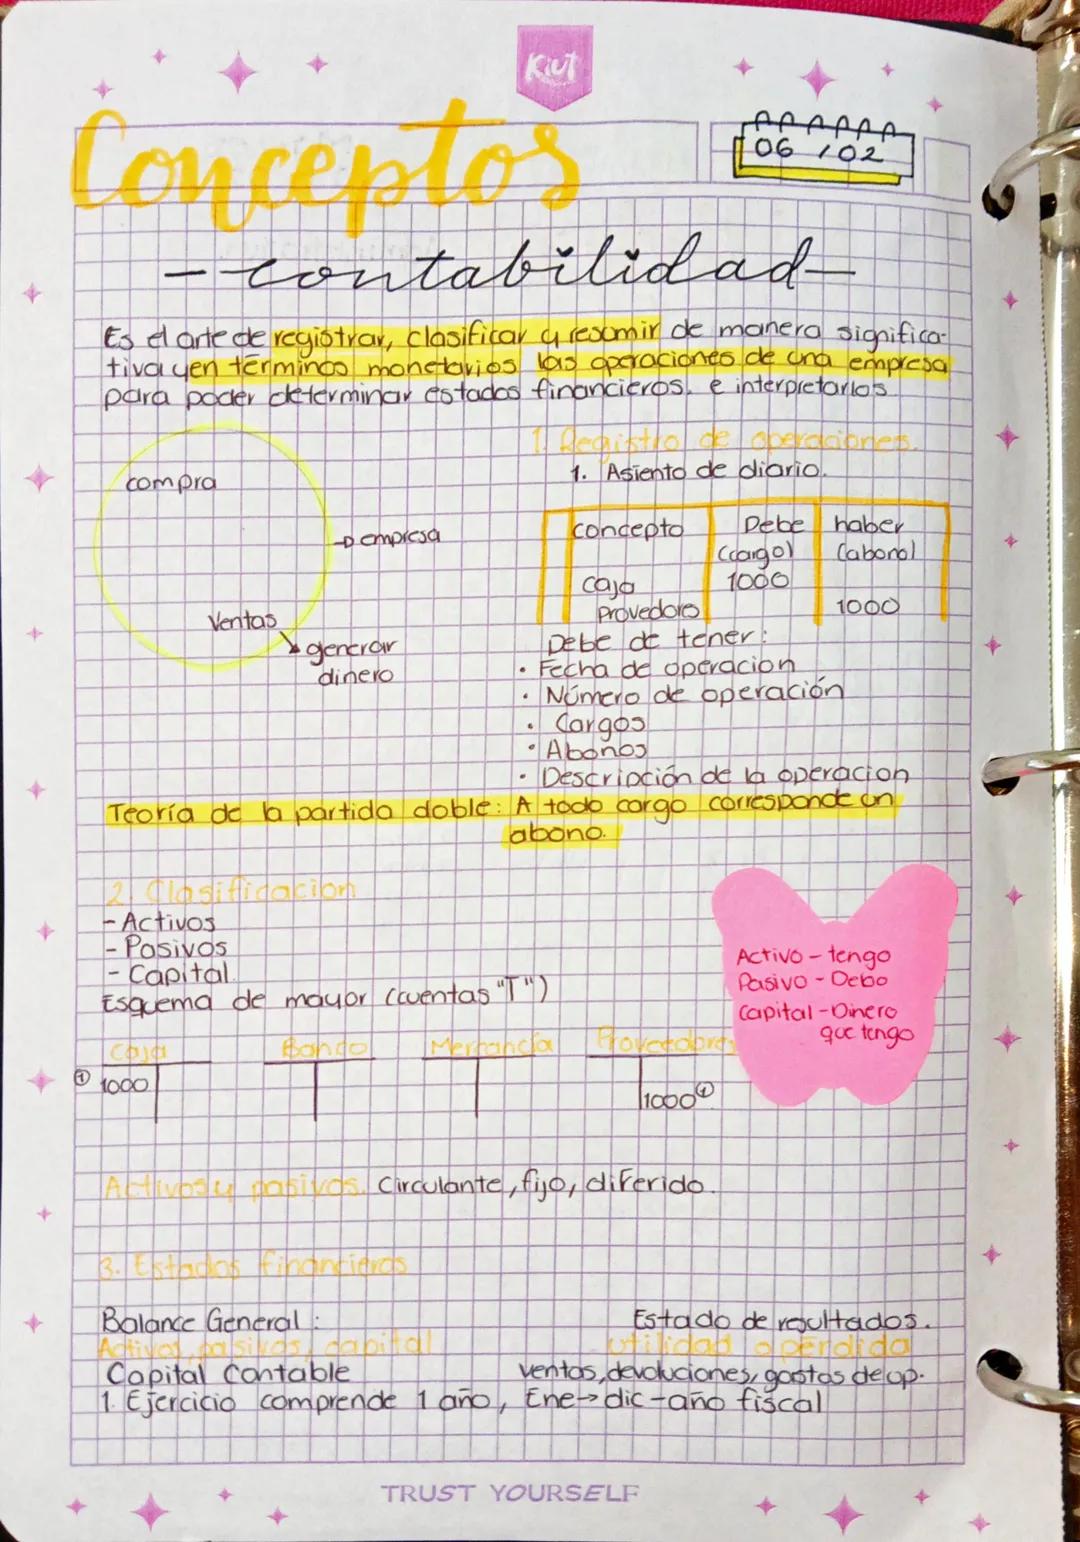 Kiut
Conceptos
06 / 02
- contabilidad -
Es el arte de registrar, clasificar y resumir de manera significa-
tiva y en términos monetarios las operaciones de una empresa
para poder determinar estados financieros. e interpretarlos.
compra
→ empresa
Ventas
generar
dinero
1. Registro de operaciones.
1. Asiento de diario.
concepto Debe haber
(cargo) (abono)
caja 1000
Provedores 1000
Debe de tener:
• Fecha de operacion
• Número de operación
• Cargos
• Abonos
• Descripción de la operacion
Teoría de la partida doble: A todo cargo corresponde un
abono.
2. Clasificacion
- Activos
- Pasivos
- Capital.
Esquema de mayor (cuentas "T")
Activo - tengo
Pasivo - Debo
Capital - Dinero
que tengo
Caja Banco Mercancía Proveedores
① 1000 1000 ①
Activos y pasivos. Circulante, fijo, diferido.
3. Estados financieros
Balance General: Estado de resultados.
Activos, pasivos, capital utilidad o perdida
Capital Contable ventas, devoluciones, gastos de op.
1. Ejercicio comprende 1 año, Ene → dic - año fiscal
TRUST YOURSELF